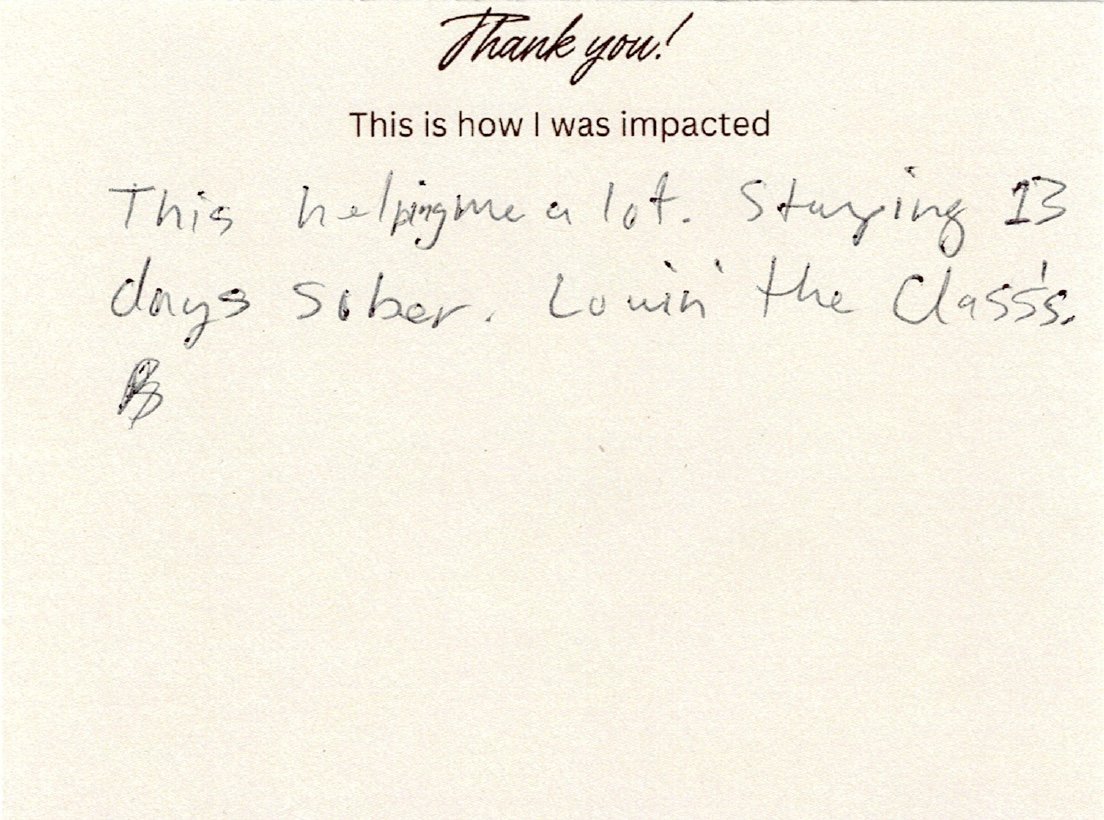 Thank you!
This is how I was impacted
This helping me a lot. Staying 13
days sober. Lovin' the Class's.